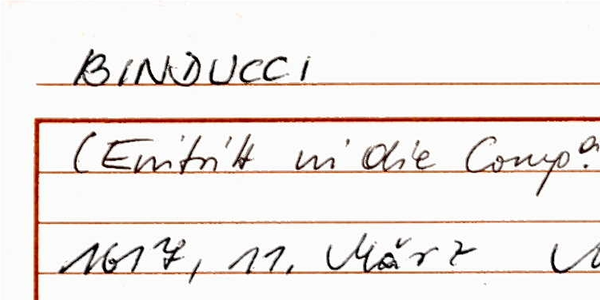 BINDUCCI
(Eintritt in die Comp.a
1617, 11. März